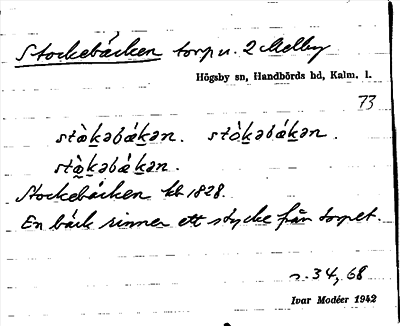 Stockebäcken torp u. 2 Mellby
Högsby sn, Handbörds hd, Kalm. l.
73
stò̀ḵəbǽḵən. stòḵəbǽḵən.
stæ̀ḵəbǽḵən.
Stockebäcken kb 1828.
En bäck rinner ett stycke från torpet.
s. 34, 68
Ivar Modéer 1942